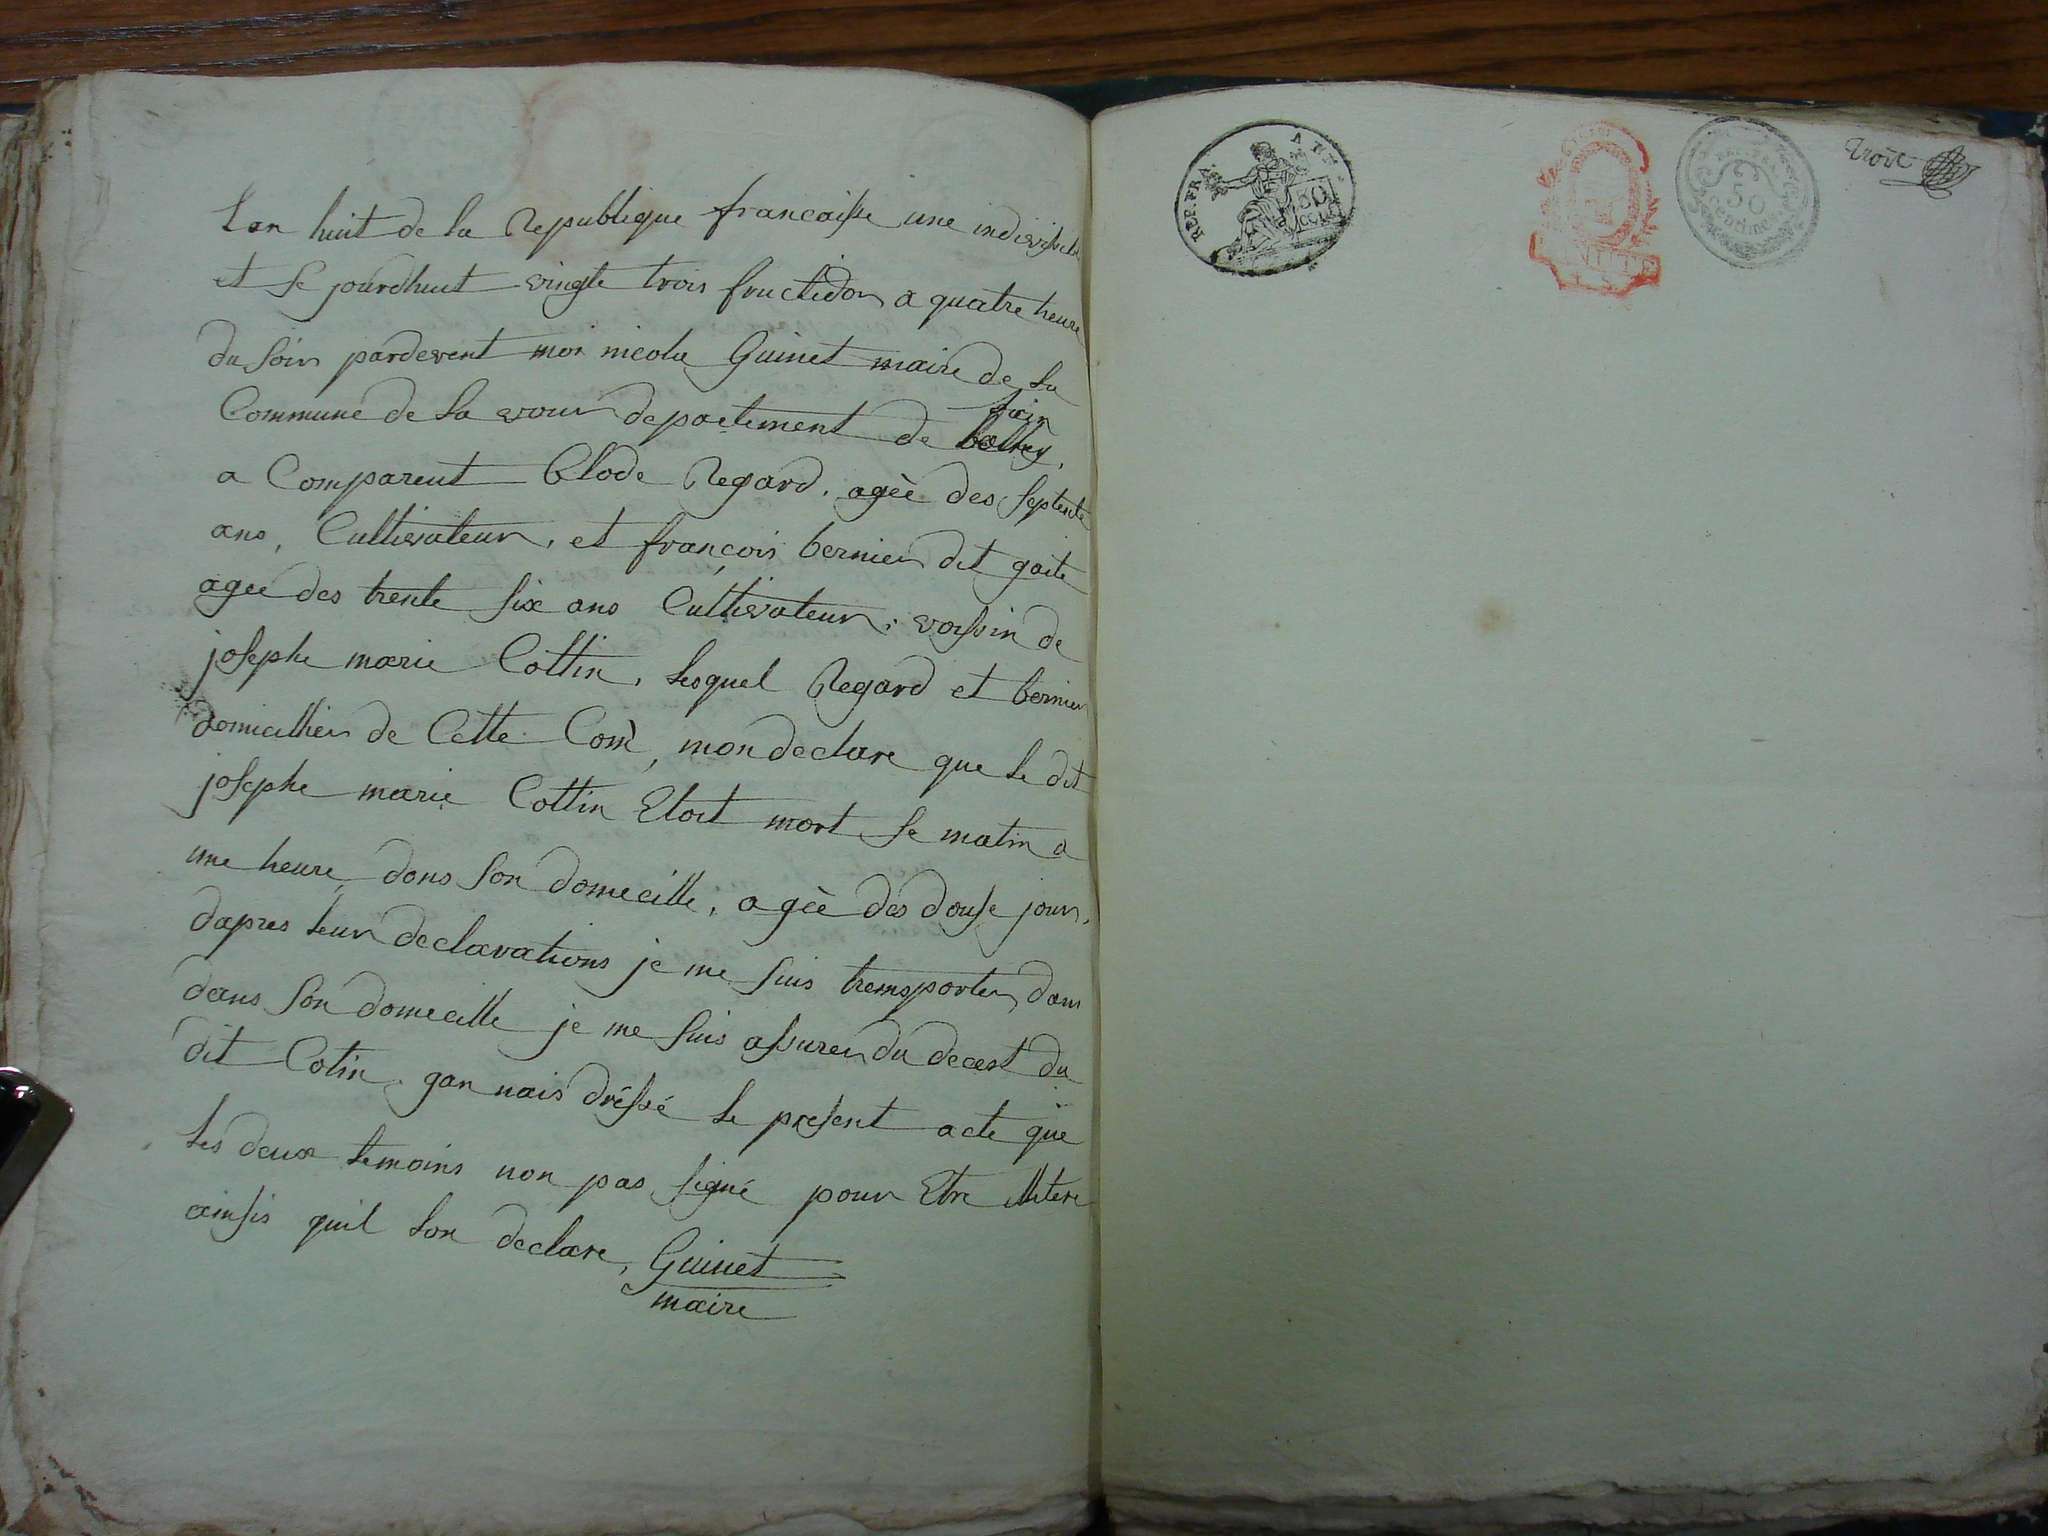 Lan huit de la Republique francaisse une indivisible
et se jourdhuit vingte trois fructidor a quatre heure
du soir pardevent moi nicola Guinet maire de la
Commune de la vour departement de
lain
a Comparent Clode Regard, agèe des septente
ans, Cultivateur, et françois bernier dit gaite
agee des trente six ans Cultivateur, voissin de
josephe marie Cottin, lesquel Regard et bernier
domicillier de Cette Com, mon declare que le dit
josephe marie Cottin Etoit mort se matin a
une heure dans son domecille, agèe des douse jour,
dapres leur declarations je me suis tremsporter dans
dans son domecille je me suis assurer du decest du
dit Cotin, gan nais dréssé le present acte que
les deux temoins non pas signé pour Etre illitere
ainsis quil lon declare, Guinet
maire
REP. FRA.
50
CEN
50
Centime